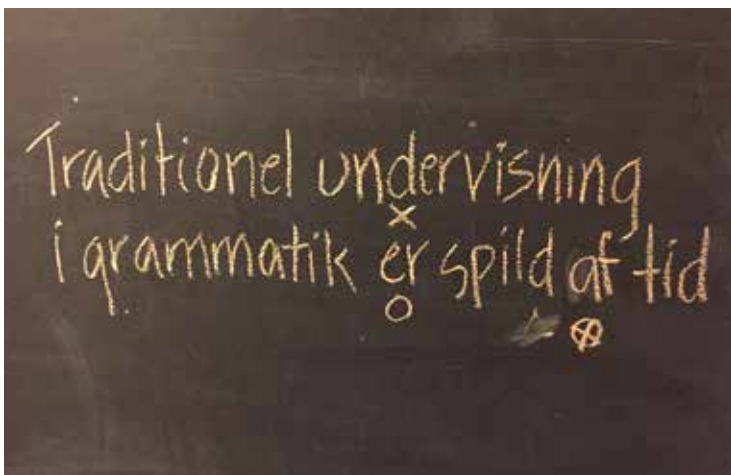 Traditionel undervisning
x
i grammatik er spild af tid
o ⊗